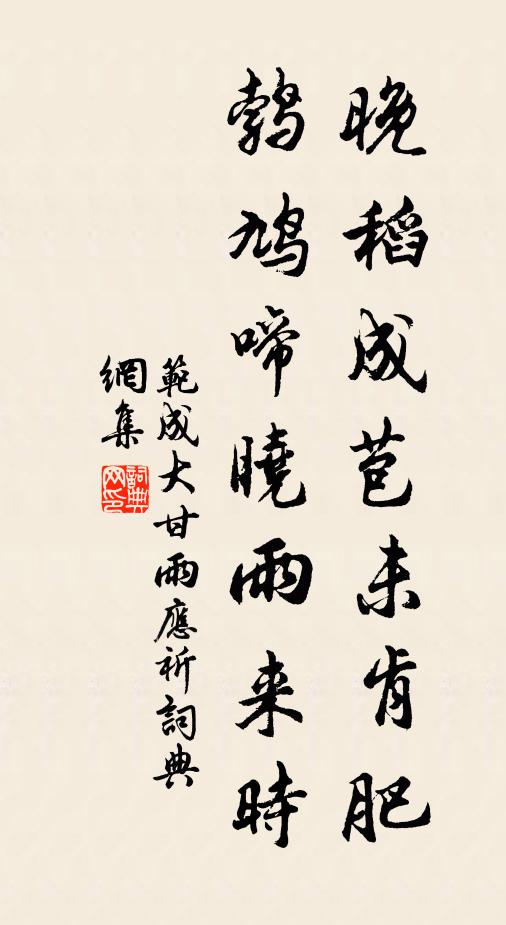 晚稻成苞未肯肥
鵓鳩啼曉雨来時
範成大甘雨應祈詞典
網集
詞典网印